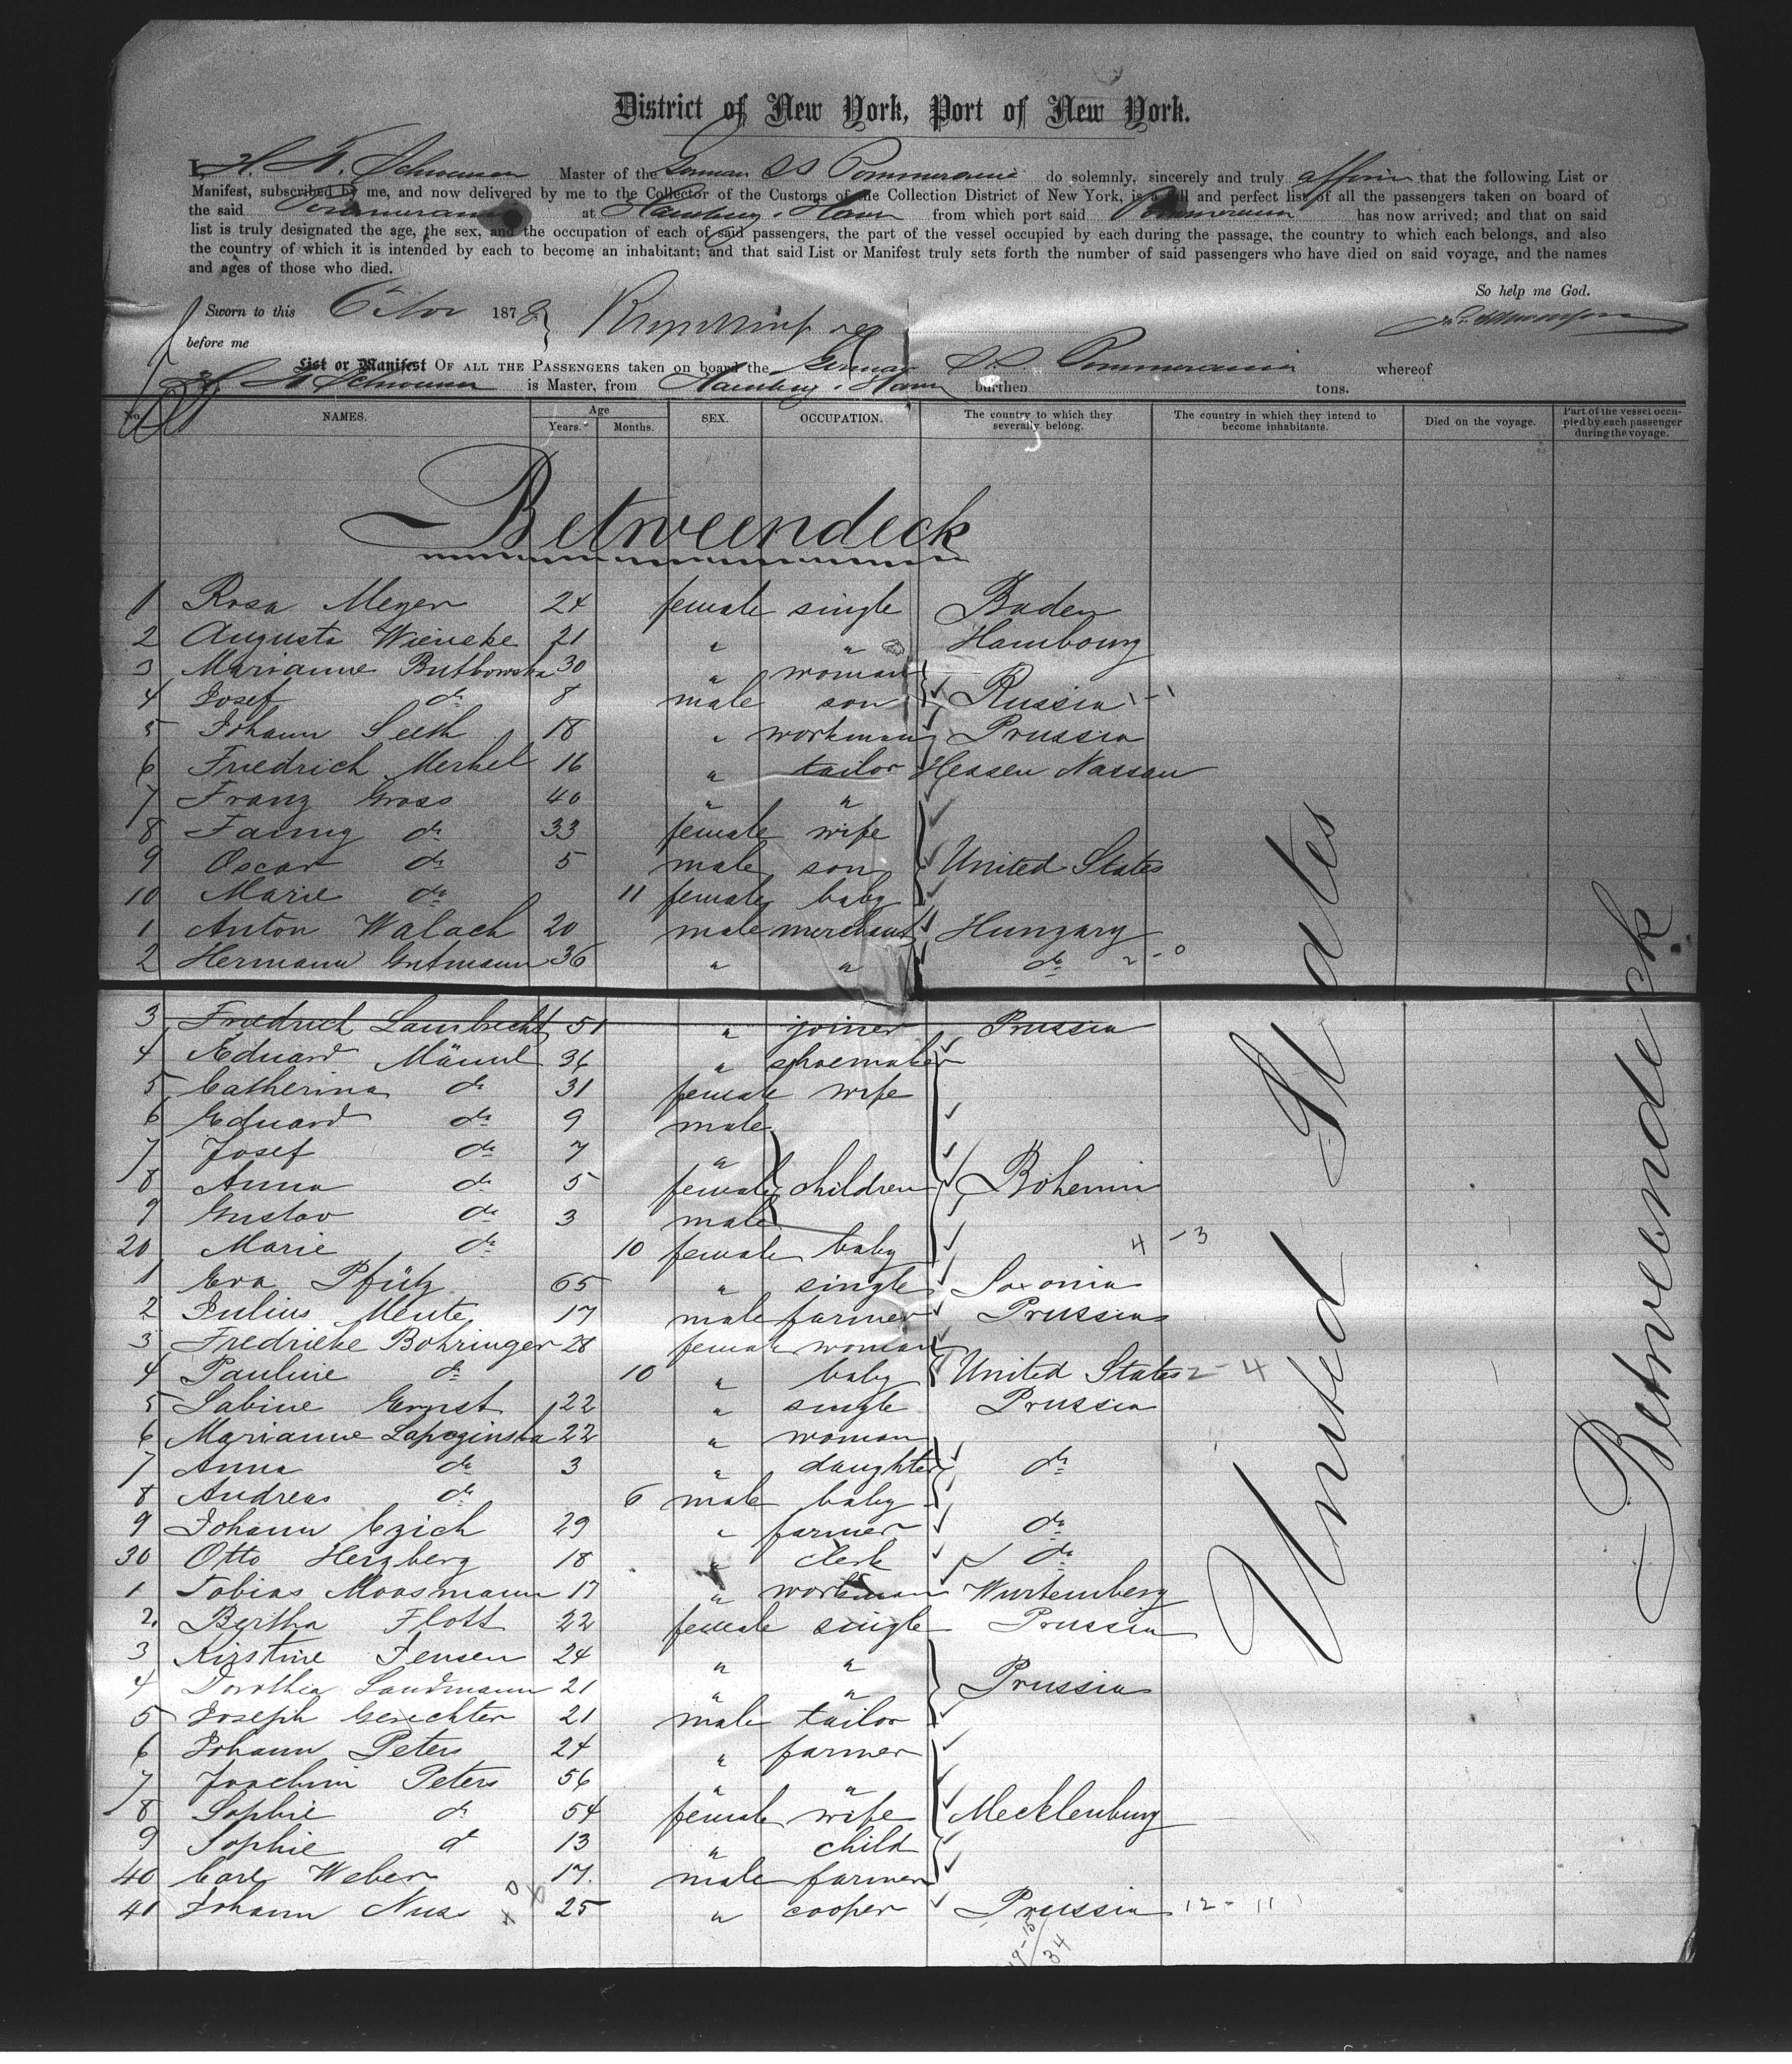 District of New York, Port of New York.
I, H. F. Schwensen Master of the German SS Pommerania do solemnly, sincerely and truly affirm that the following List or
Manifest, subscribed by me, and now delivered by me to the Collector of the Customs of the Collection District of New York, is a full and perfect list of all the passengers taken on board of
the said Pommerania at Hamburg & Havre from which port said Pommerania has now arrived; and that on said
list is truly designated the age, the sex, and the occupation of each of said passengers, the part of the vessel occupied by each during the passage, the country to which each belongs, and also
the country of which it is intended by each to become an inhabitant; and that said List or Manifest truly sets forth the number of said passengers who have died on said voyage, and the names
and ages of those who died.
So help me God.
Sworn to this 6 Nov 1878
before me
List or Manifest OF ALL THE PASSENGERS taken on board the German SS. Pommerania whereof
is Master, from Hamburg & Havre burthen tons.
No. NAMES. Age Years. Months. SEX. OCCUPATION. The country to which they severally belong. The country in which they intend to become inhabitants. Died on the voyage. Part of the vessel occupied by each passenger during the voyage.
Betweendeck
1 Rosa Meyer 24 female single Baden
2 Augusta Wieneke 21 " " Hambourg
3 Marianne Butkowska 30 " woman
4 Josef do 8 male son Russia 1-1
5 Johann Seeth 18 " workman Prussia
6 Friedrich Merkel 16 " tailor Hessen Nassau
7 Franz Gross 40 " "
8 Fanny do 33 female wife
9 Oscar do 5 male son United States
10 Marie do 11 female baby
1 Anton Walach 20 male merchant Hungary
2 Hermann Gutmann 36 " " do 2-0
3 Friedrich Lambrecht 51 " joiner Prussia
4 Eduard 36 " shoemaker
5 Catherina do 31 female wife
6 Eduard do 9 male
7 Josef do 7 "
8 Anna do 5 female children Bohemia
9 Gustav do 3 male
20 Marie do 10 female baby 4-3
1 Eva Pfütz 65 " single Saxonia
2 Julius Meute 17 male farmer Prussia
3 Fredrieke Bohringer 28 female woman
4 Pauline do 10 " baby United States 2-4
5 Sabine Ernst 22 " single Prussia
6 Marianne Lapczinska 22 " woman
7 Anna do 3 " daughter do
8 Andreas do 6 male baby
9 Johann Czich 29 " farmer do
30 Otto Herzberg 18 " clerk do
1 Tobias Moosmann 17 " workman Wurtemberg
2 Bertha Flott 22 female single Prussia
3 Kirstine Jensen 24 " "
4 Dorothea Landmann 21 " " Prussia
5 Joseph Gerechter 21 male tailor
6 Johann Peters 24 " farmer
7 Joachim Peters 56 " "
8 Sophie do 54 female wife Mecklenburg
9 Sophie do 13 " child
40 Carl Weber 17 male farmer
41 Johann Nuss 25 " cooper Prussia 12-11
19-15/34
United States
Betweendeck